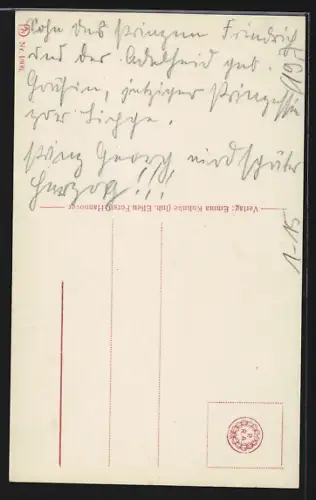 Sohn des Prinzen Friedrich
und der Adelheid geb.
Gräfin, jetziger Prinzessin
zur Lippe.
Prinz Georg wird später
Herzog!!!
Verlag: Emma Kuhnke (Inh. Elfen Forste) Hannover